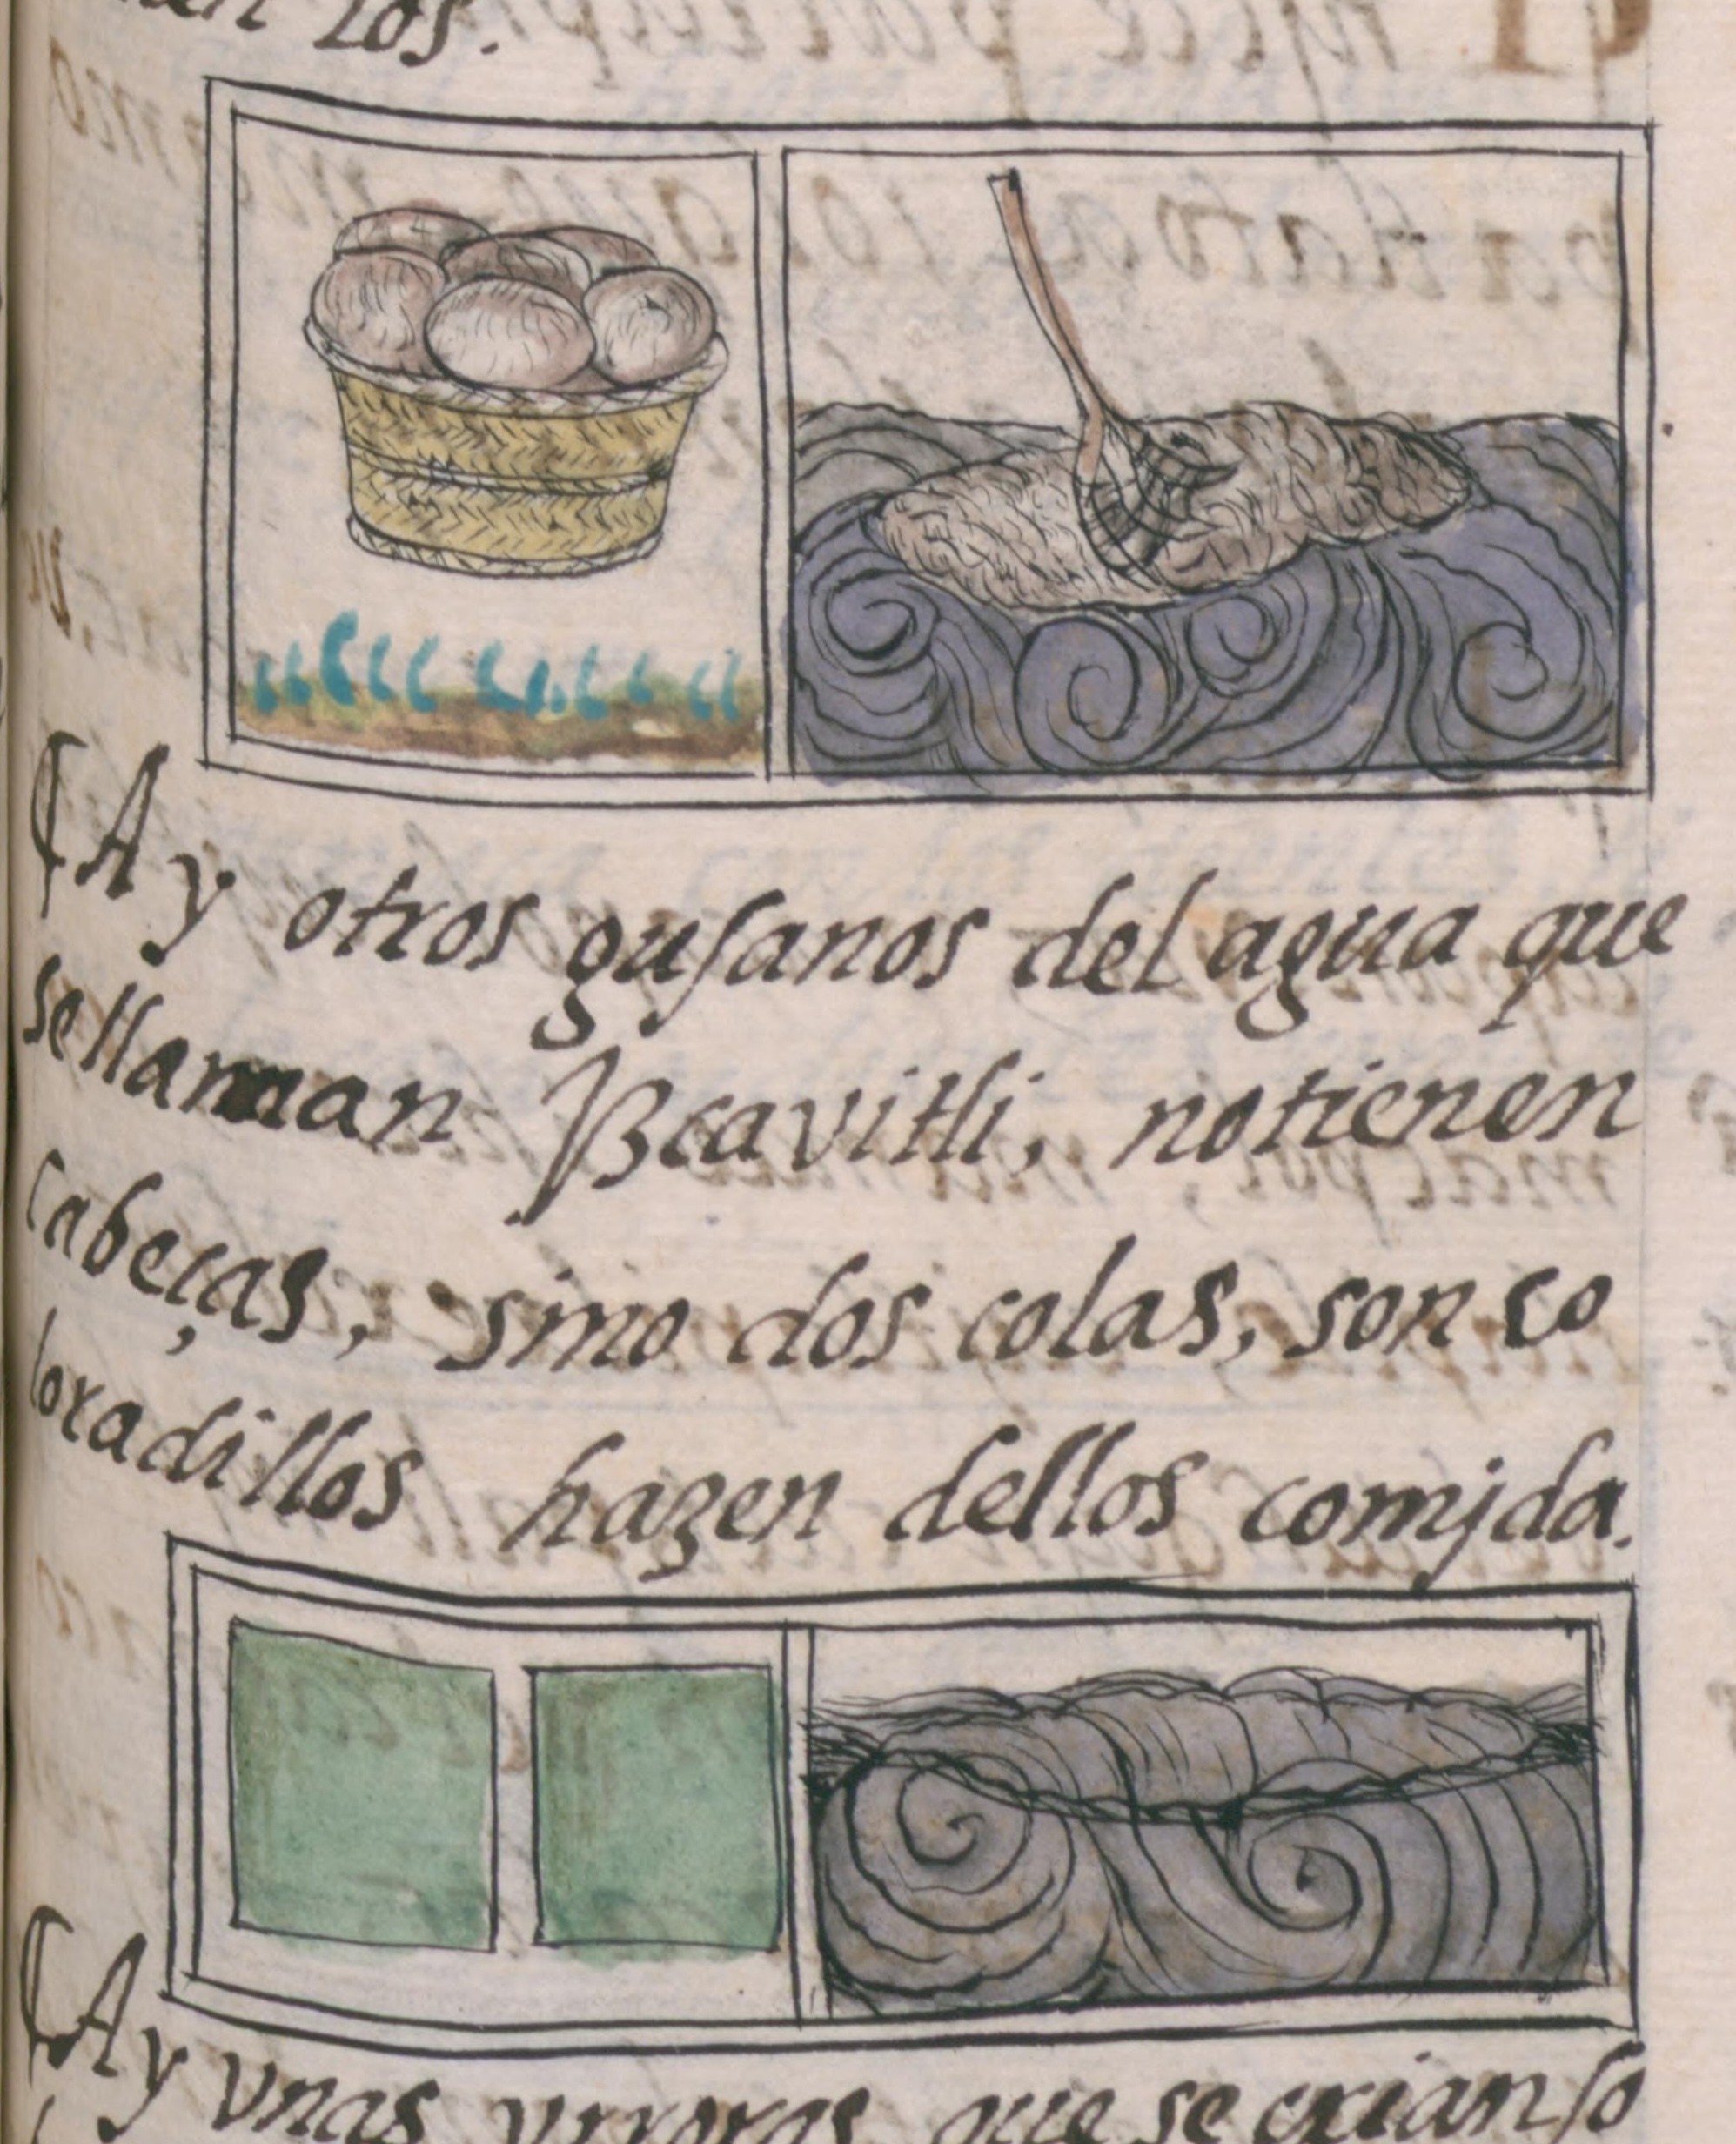 los.
¶Ay otros gusanos del agua que
se llaman Yzcavitli, no tienen
cabeças, sino dos colas, son co
loradillos hazen dellos comjda.
¶Ay vnas vrronas que se crian so